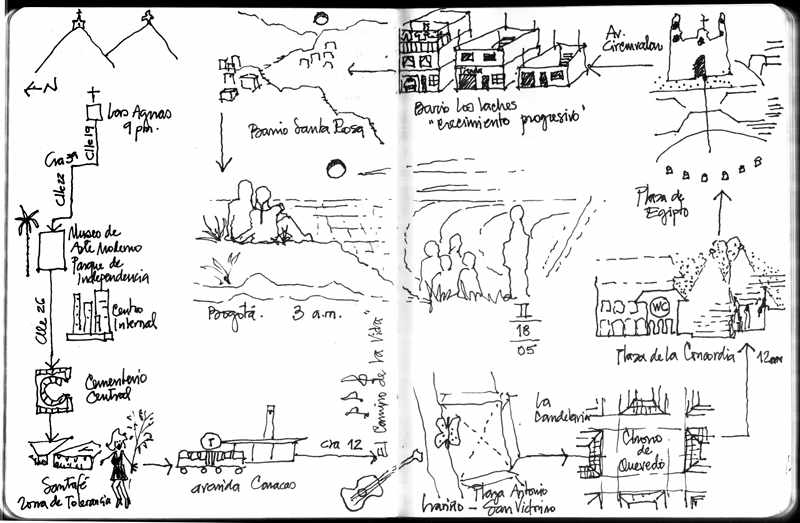 N
Las Aguas
9 pm.
Clle 19
Cra 3ª
Clle 22
Museo de
Arte Moderno
Parque de
Independencia
Centro
Internal
Clle 26
Cementerio
Central
Santafé
Zona de Tolerancia
T
avenida Caracas
Cra 12
"El Camino de la Vida"
Barrio Santa Rosa
Bogotá. 3 a.m.
Tienda
Barrio Los Laches
"Crecimiento progresivo"
Av.
Circunvalar
Plaza de
Egipto
II
18
05
WC
Plaza de la Concordia
12am
La
Candelaria
Chorro
de
Quevedo
Plaza Antonio
Nariño - San Victorino